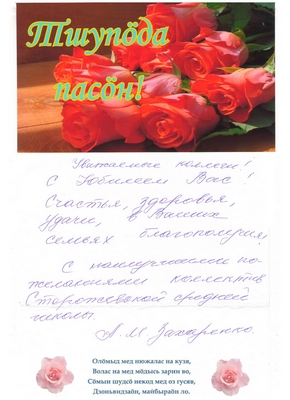 Тшупӧда
пасӧн!
Уважаемые коллеги!
С Юбилеем Вас!
Счастья, здоровья,
удачи, в Ваших
семьях благополучия,
С наилучшими по-
желаниями коллектив
Сторожевской средней
школы.
А. М. Захаренко.
Олӧмыд мед нюжалас на кузя,
Волас на мед мӧдысь зарни во,
Сӧмын шудсӧ некод мед оз гусяв,
Дзоньвидзаӧн, майбыраӧн ло.